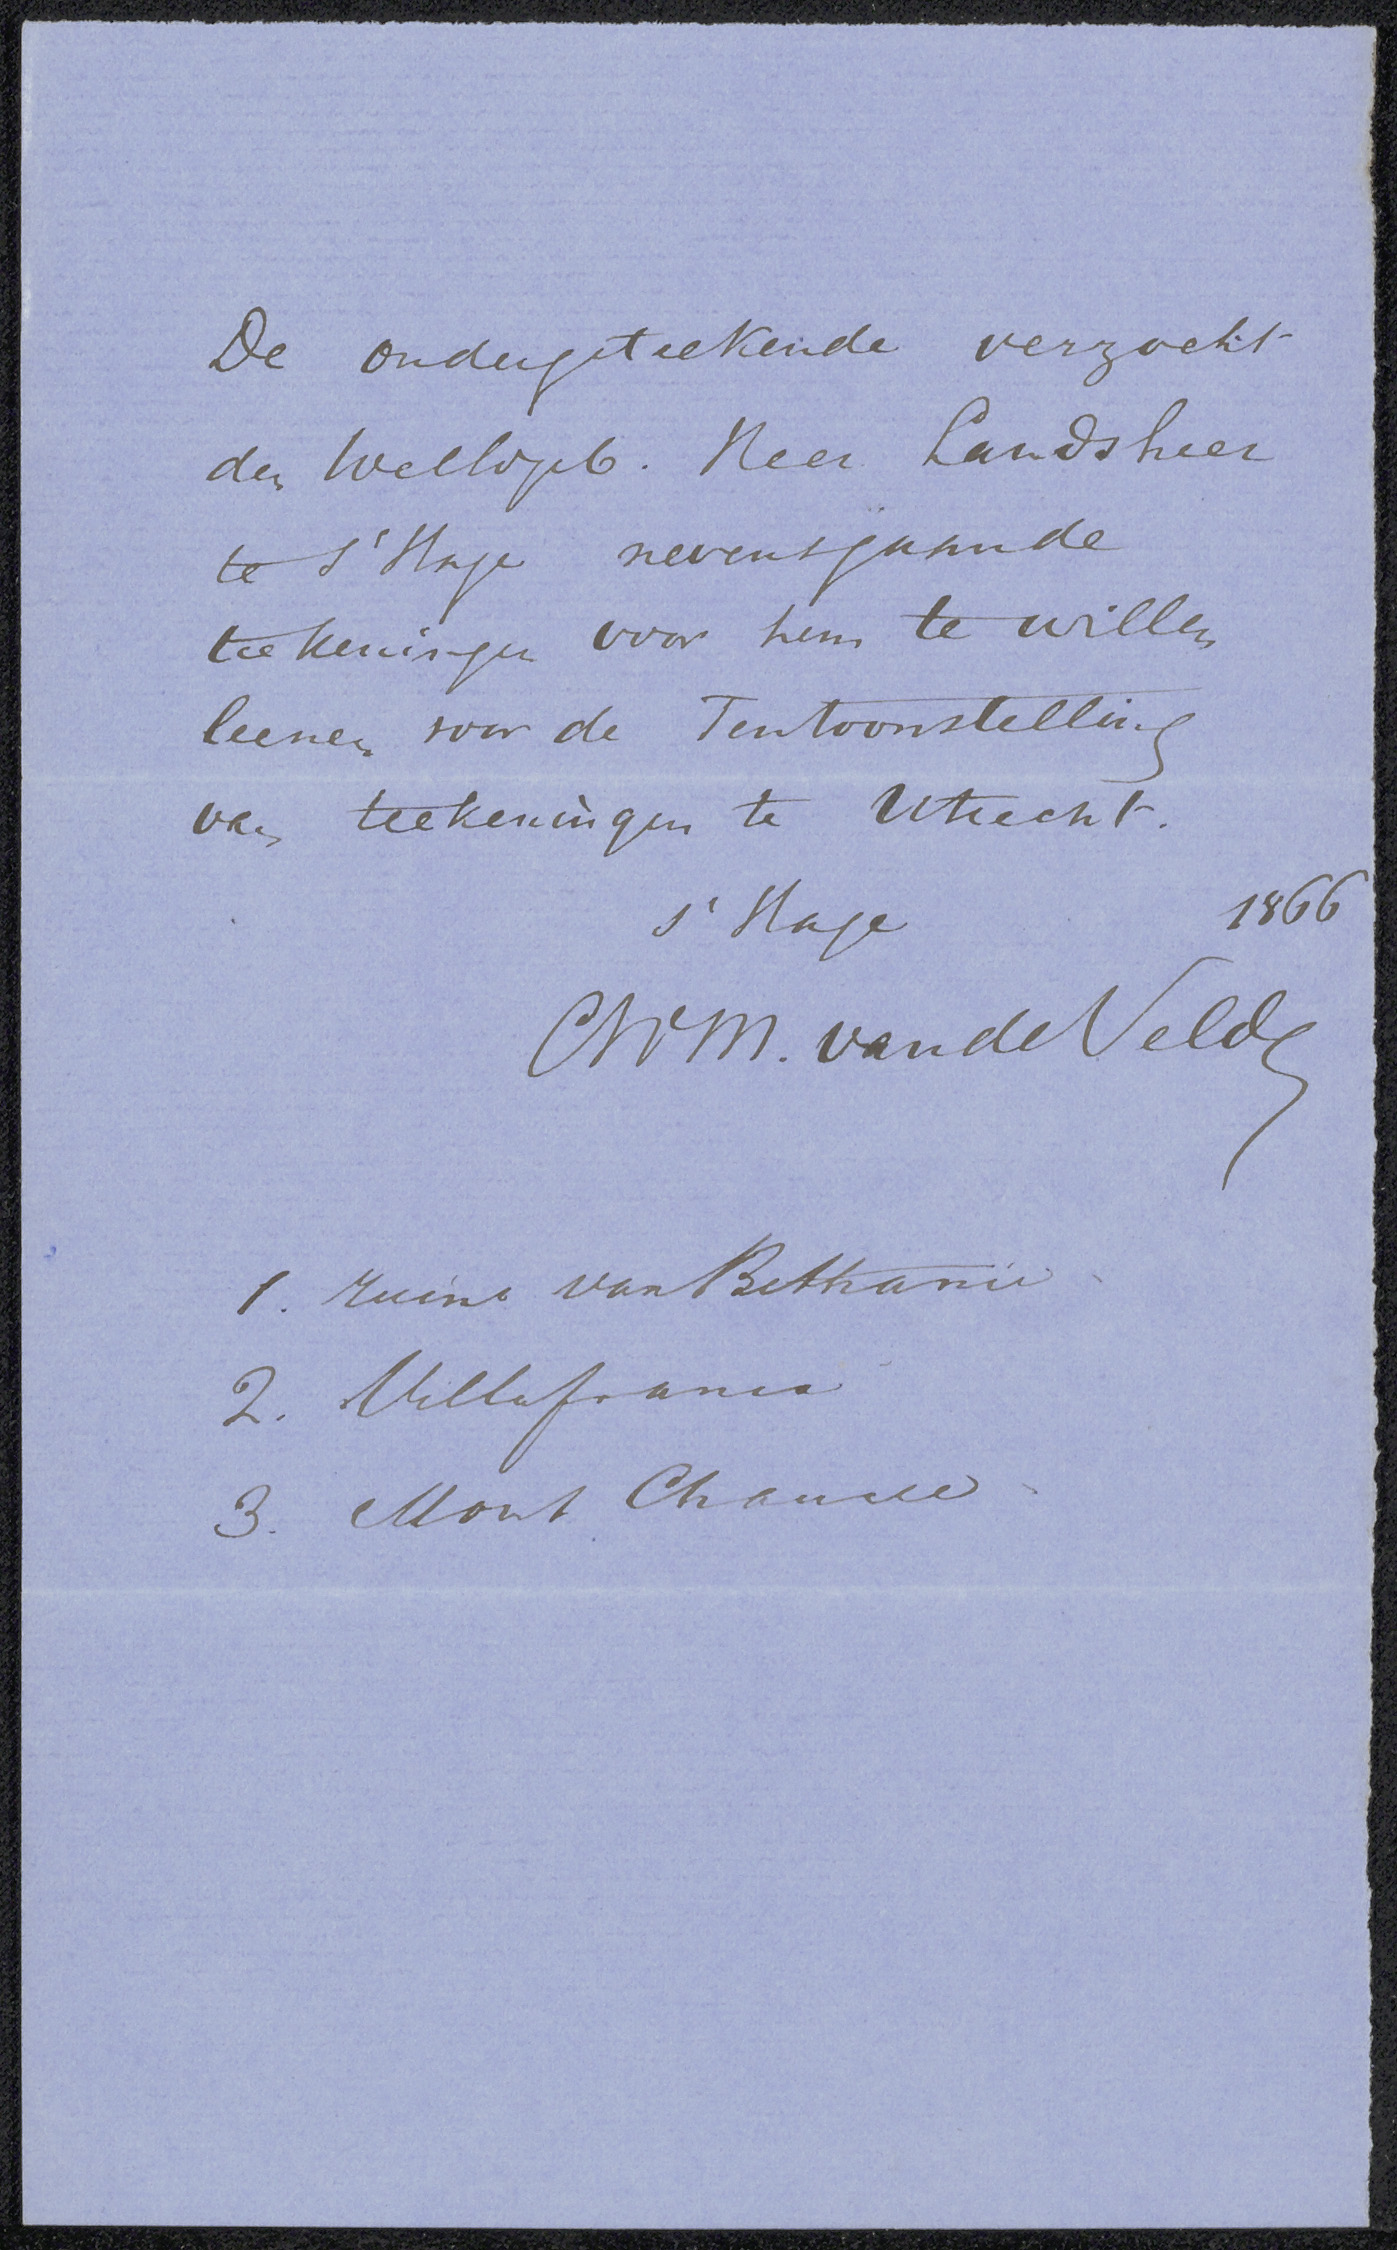 De ondergeteekende verzoekt
den Weledgeb. Heer Landsheer
te s'Hage nevensgaande
teekeningen voor hem te willen
leenen voor de Tentoonstelling
van teekeningen te Utrecht.
s'Hage 1866
CWM. van de Velde
1. ruine van Bethanie
2. Villafranca
3. Mont Chauve